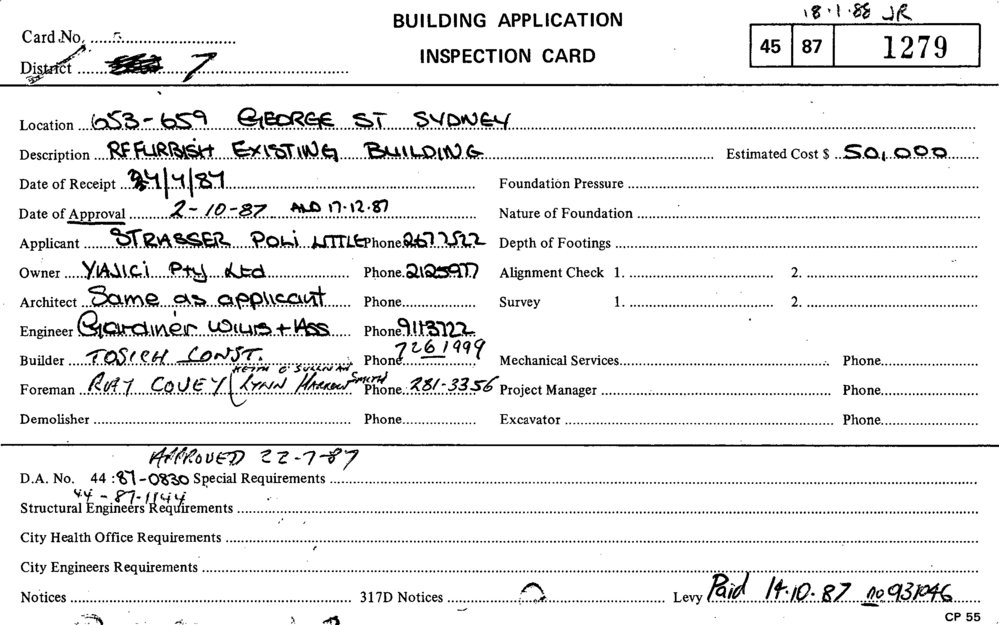 18·1·88 JR
BUILDING APPLICATION
INSPECTION CARD
45 87 1279
Card No. 5
District 7
Location 653-659 GEORGE ST SYDNEY
Description REFURBISH EXISTING BUILDING Estimated Cost $ 50,000
Date of Receipt 24/4/87 Foundation Pressure
Date of Approval 2-10-87 ALD 17.12.87 Nature of Foundation
Applicant STRASSER POLI LITTLE Phone 2677522 Depth of Footings
Owner Pty Ltd Phone 2125977 Alignment Check 1. 2.
Architect Same as applicant Phone Survey 1. 2.
Engineer Gardiner Willis + Ass Phone 9113722
Builder TOSICH CONST. Phone 7261999 Mechanical Services Phone
KEITH O'SULLIVAN
Foreman RAY COVEY (LYNN SMITH Phone 281-3356 Project Manager Phone
Demolisher Phone Excavator Phone
APPROVED 22-7-87
D.A. No. 44:87-0830 Special Requirements
44-87-1144
Structural Engineers Requirements
City Health Office Requirements
City Engineers Requirements
Notices 317D Notices Levy Paid 14.10.87 no 931046
CP 55